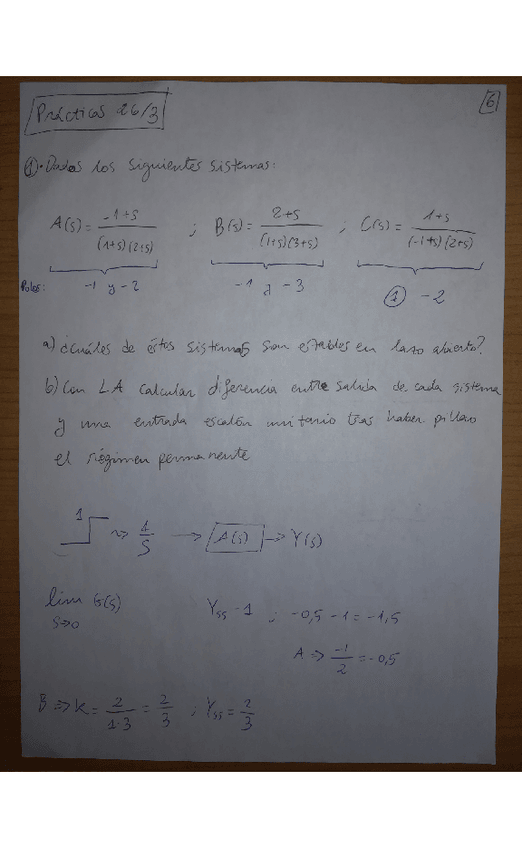 Prácticas 26/3
6
①. Dados los siguientes sistemas:
A(s) = -1+s / (1+s)(2+s) ; B(s) = 2+s / (1+s)(3+s) ; C(s) = 1+s / (-1+s)(2+s)
Polos: -1 y -2 -1 y -3 ① -2
a) ¿Cuáles de éstos sistemas son estables en lazo abierto?
b) Con LA calcular diferencia entre salida de cada sistema
y una entrada escalón unitario tras haber pillao
el régimen permanente
1 ~> 1/s → A(s) → Y(s)
lim G(s) Yss - 1 ; -0,5 - 1 = -1,5
s→0
A => -1/2 = -0,5
B => K = 2/1·3 = 2/3 ; Yss = 2/3